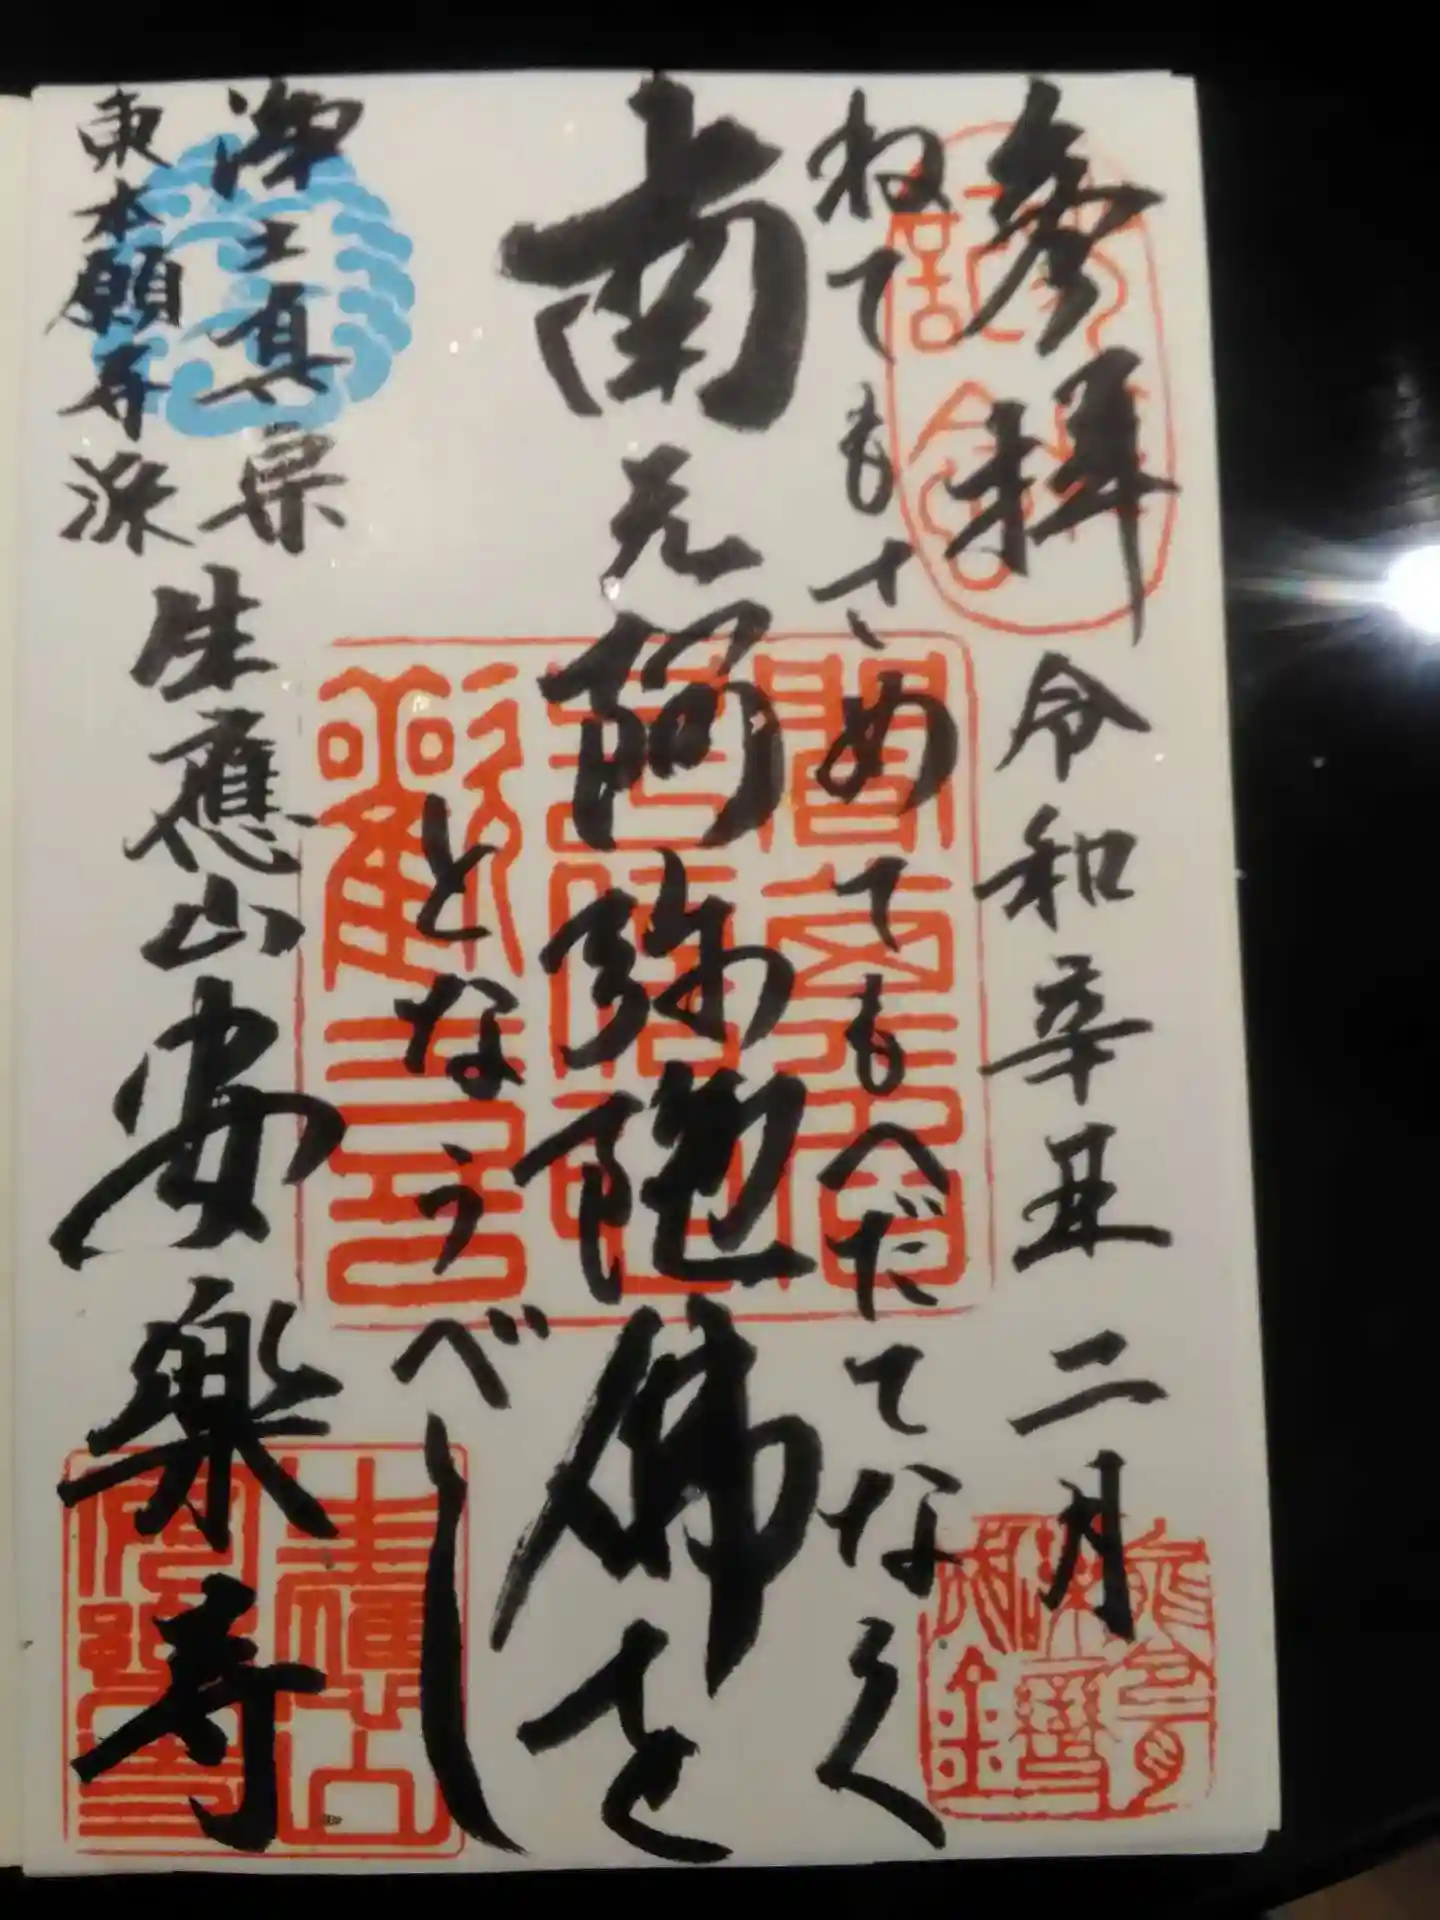 参拝 令和辛丑二月
ねてもさめてもへだてなく
南无阿弥陀佛を
となうべし
浄土真宗
東本願寺派
生應山安樂寺